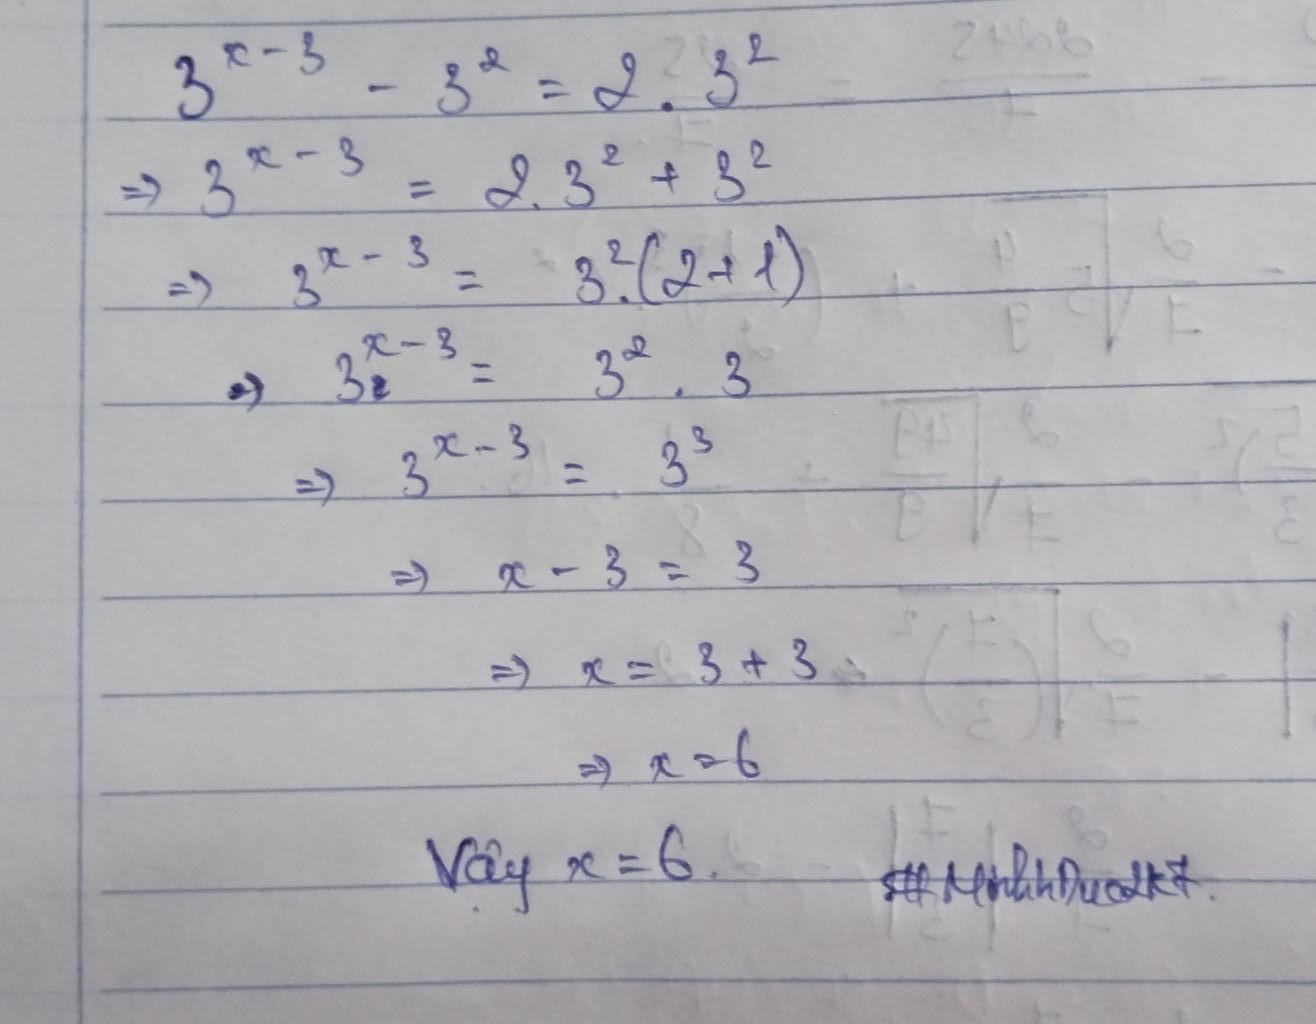 3^{x-3} - 3^2 = 2 . 3^2
=> 3^{x-3} = 2. 3^2 + 3^2
=> 3^{x-3} = 3^2.(2+1)
=> 3^{x-3} = 3^2 . 3
=> 3^{x-3} = 3^3
=> x - 3 = 3
=> x = 3 + 3
=> x = 6
Vậy x = 6.